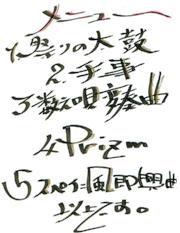 メニュー
1.祭りの太鼓
2.手事
3数え唄変奏曲
4.Prizm
5スペイン風即興曲
以上です。